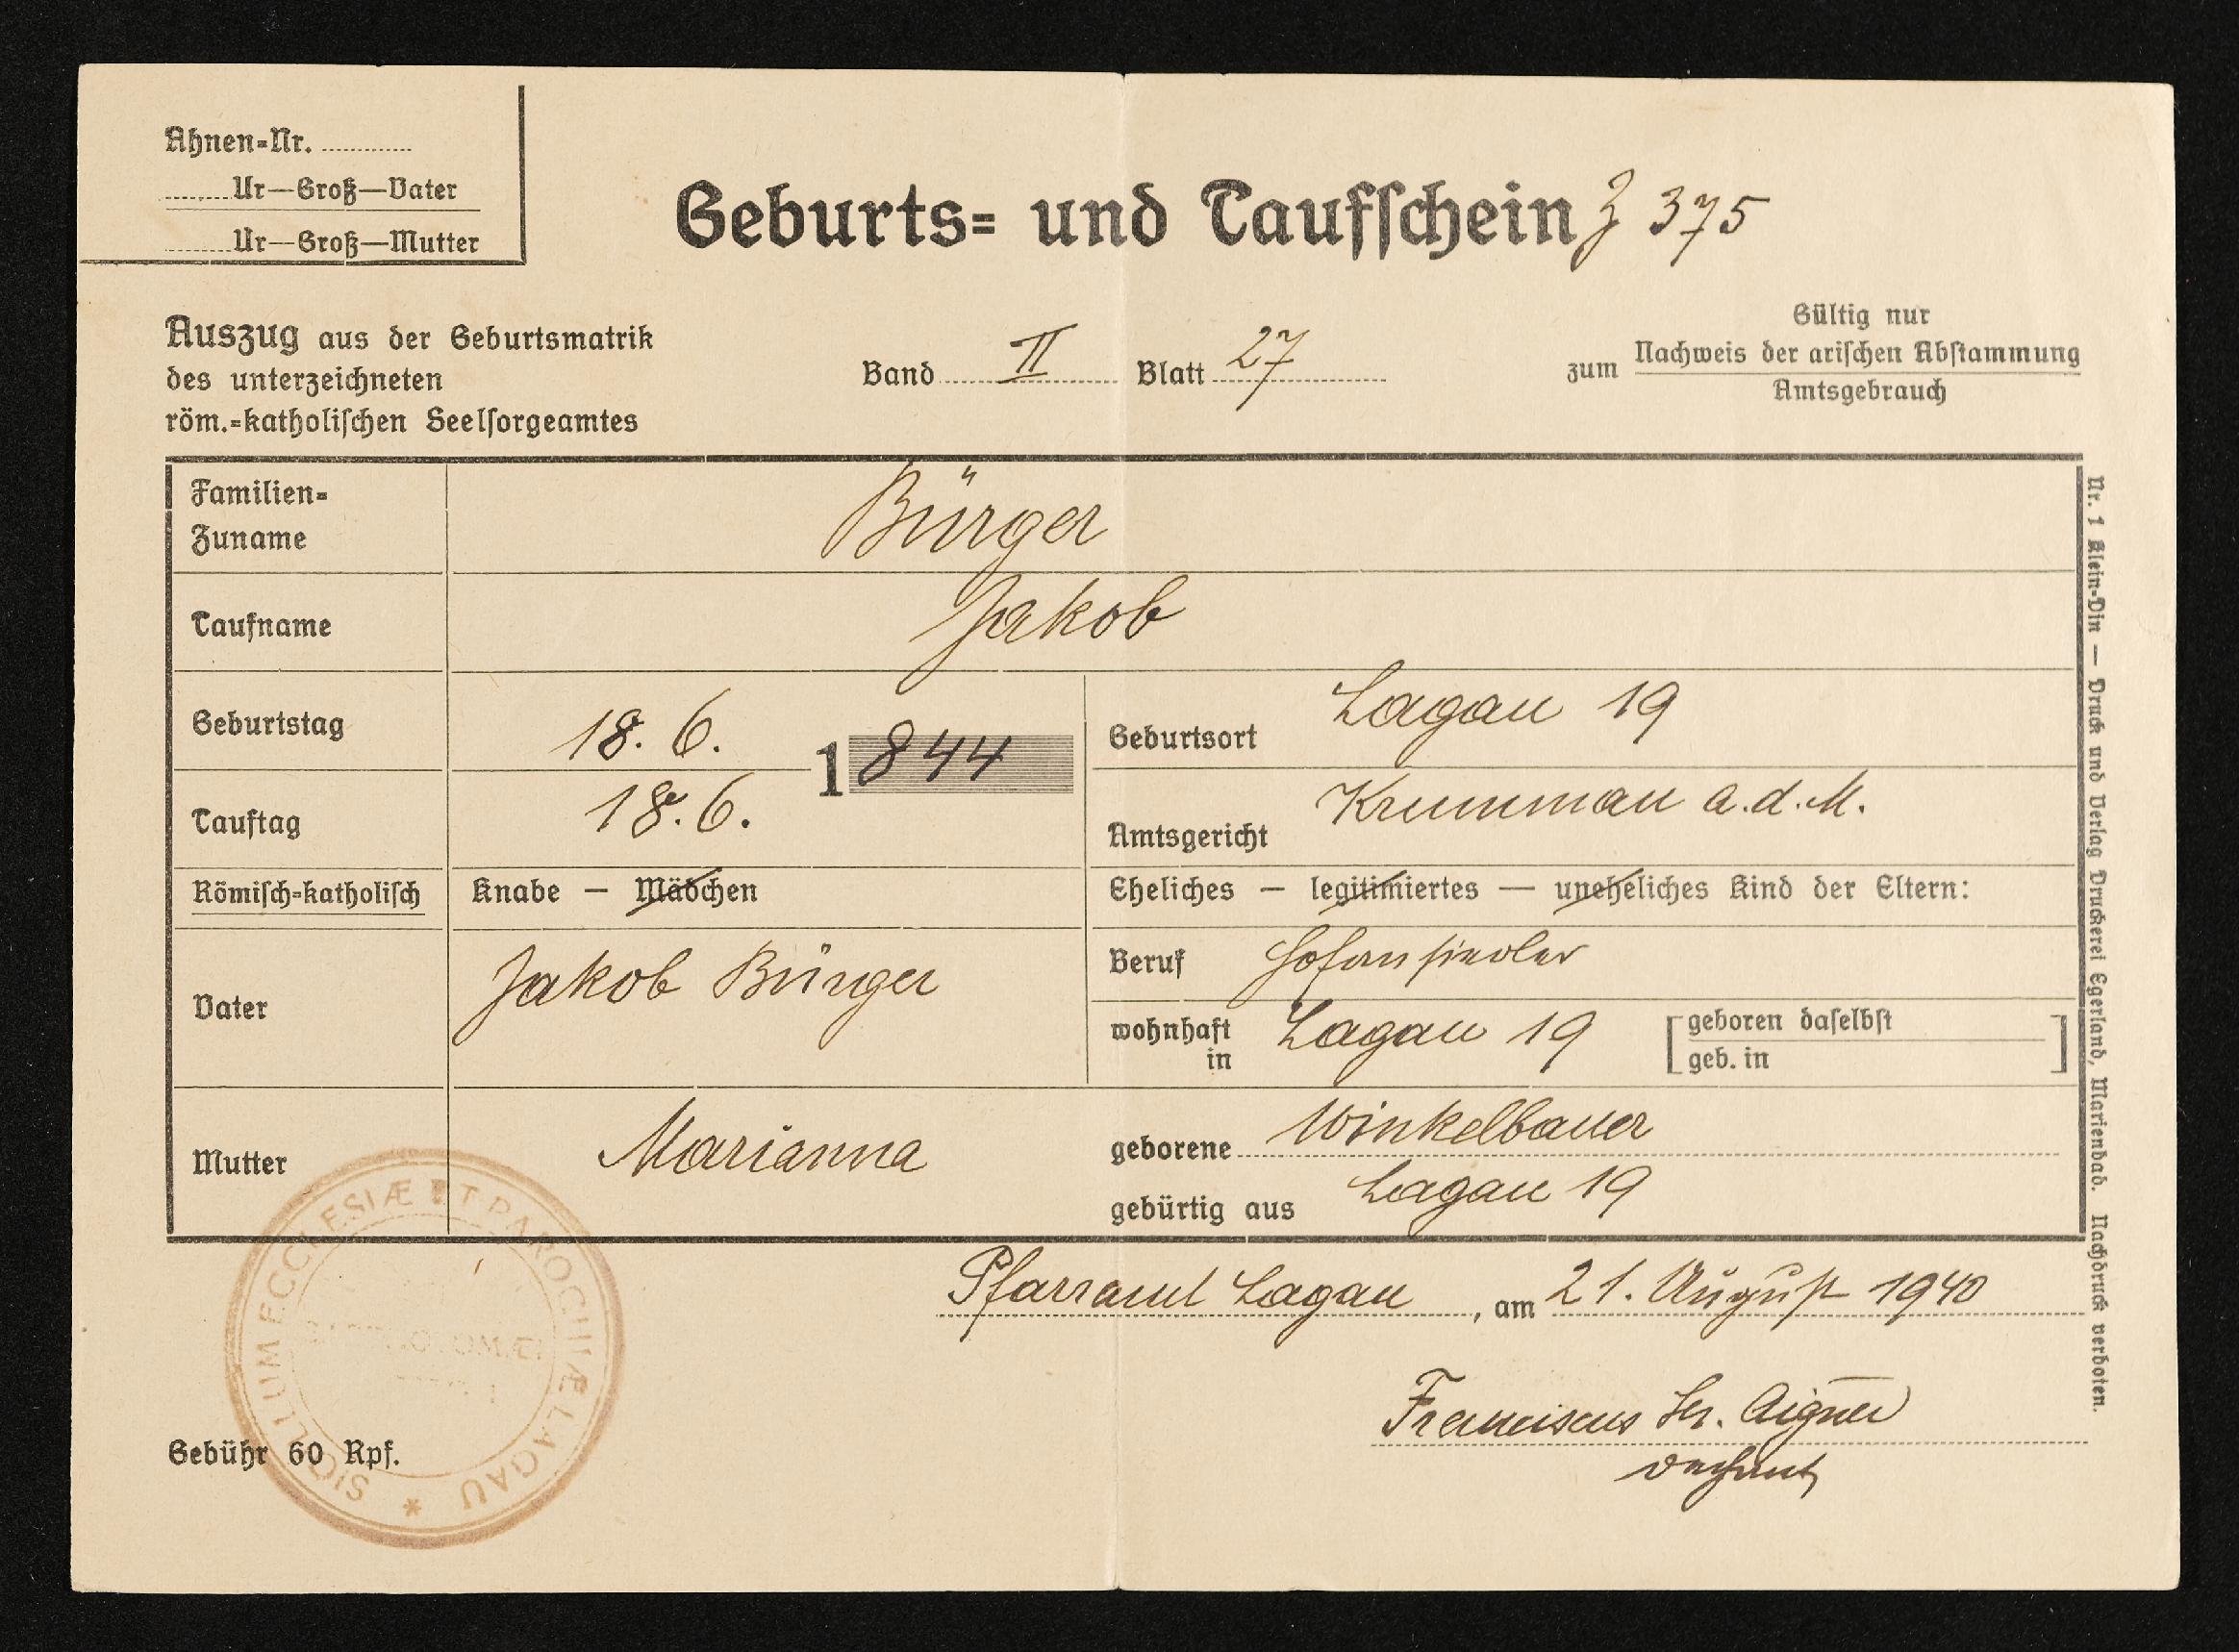 Ahnen=Nr. ............
........Ur—Groß—Vater
........Ur—Groß—Mutter
Geburts= und Taufschein Z 375
Auszug aus der Geburtsmatrik
des unterzeichneten
röm.=katholischen Seelsorgeamtes
Band II Blatt 27
Gültig nur
zum Nachweis der arischen Abstammung
Amtsgebrauch
Familien=
Zuname
Bürger
Taufname
Jakob
Geburtstag
18. 6.
1844
Geburtsort
Lagau 19
Tauftag
18. 6.
Amtsgericht
Krummau a.d.M.
Römisch=katholisch
Knabe — Mädchen
Eheliches — legitimiertes — uneheliches Kind der Eltern:
Vater
Jakob Bürger
Beruf
wohnhaft
in
Lagau 19
geboren daselbst
geb. in
Mutter
Marianna
geborene Winkelbauer
gebürtig aus Lagau 19
Pfarramt Lagau, am 21. August 1940
Franciscus Ser. Aigner
Dechant
Gebühr 60 Rpf.
SIGILLUM ECCLESIÆ ET PAROCHIÆ LAGAU *
Nr. 1 Klein-Din — Druck und Verlag Druckerei Egerland, Marienbad. Nachdruck verboten.